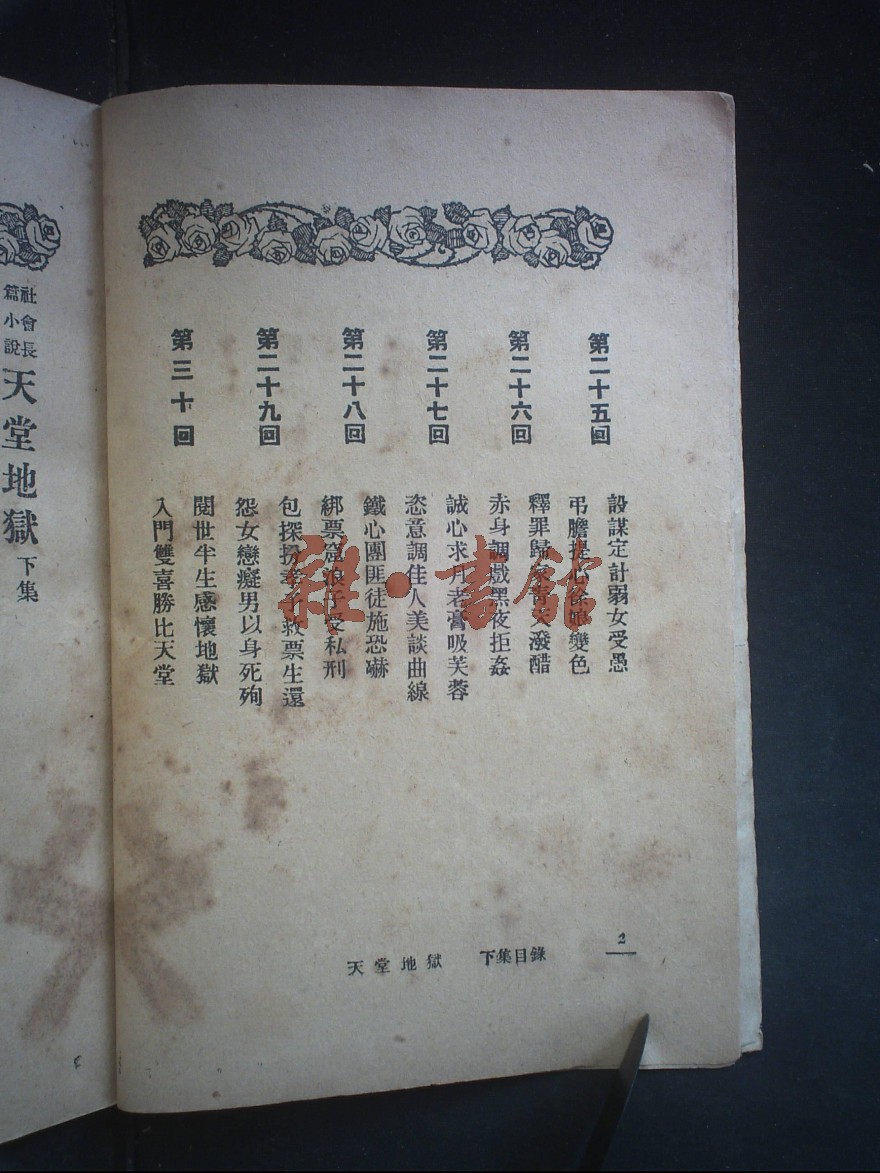 第二十五回
設謀定計弱女受愚
弔膽提心徐娘變色
第二十六回
釋罪歸家青天潑醋
赤身調戲黑夜拒姦
第二十七回
誠心求月老膏吸芙蓉
恣意調佳人美談曲線
第二十八回
鐵心團匪徒施恐嚇
綁票窟浪子受私刑
第二十九回
包探扮孝子救票生還
怨女戀癡男以身死殉
第三十回
閱世半生感懷地獄
入門雙喜勝比天堂
天堂地獄 下集目錄
2
社會長篇小說 天堂地獄 下集
雜·書館